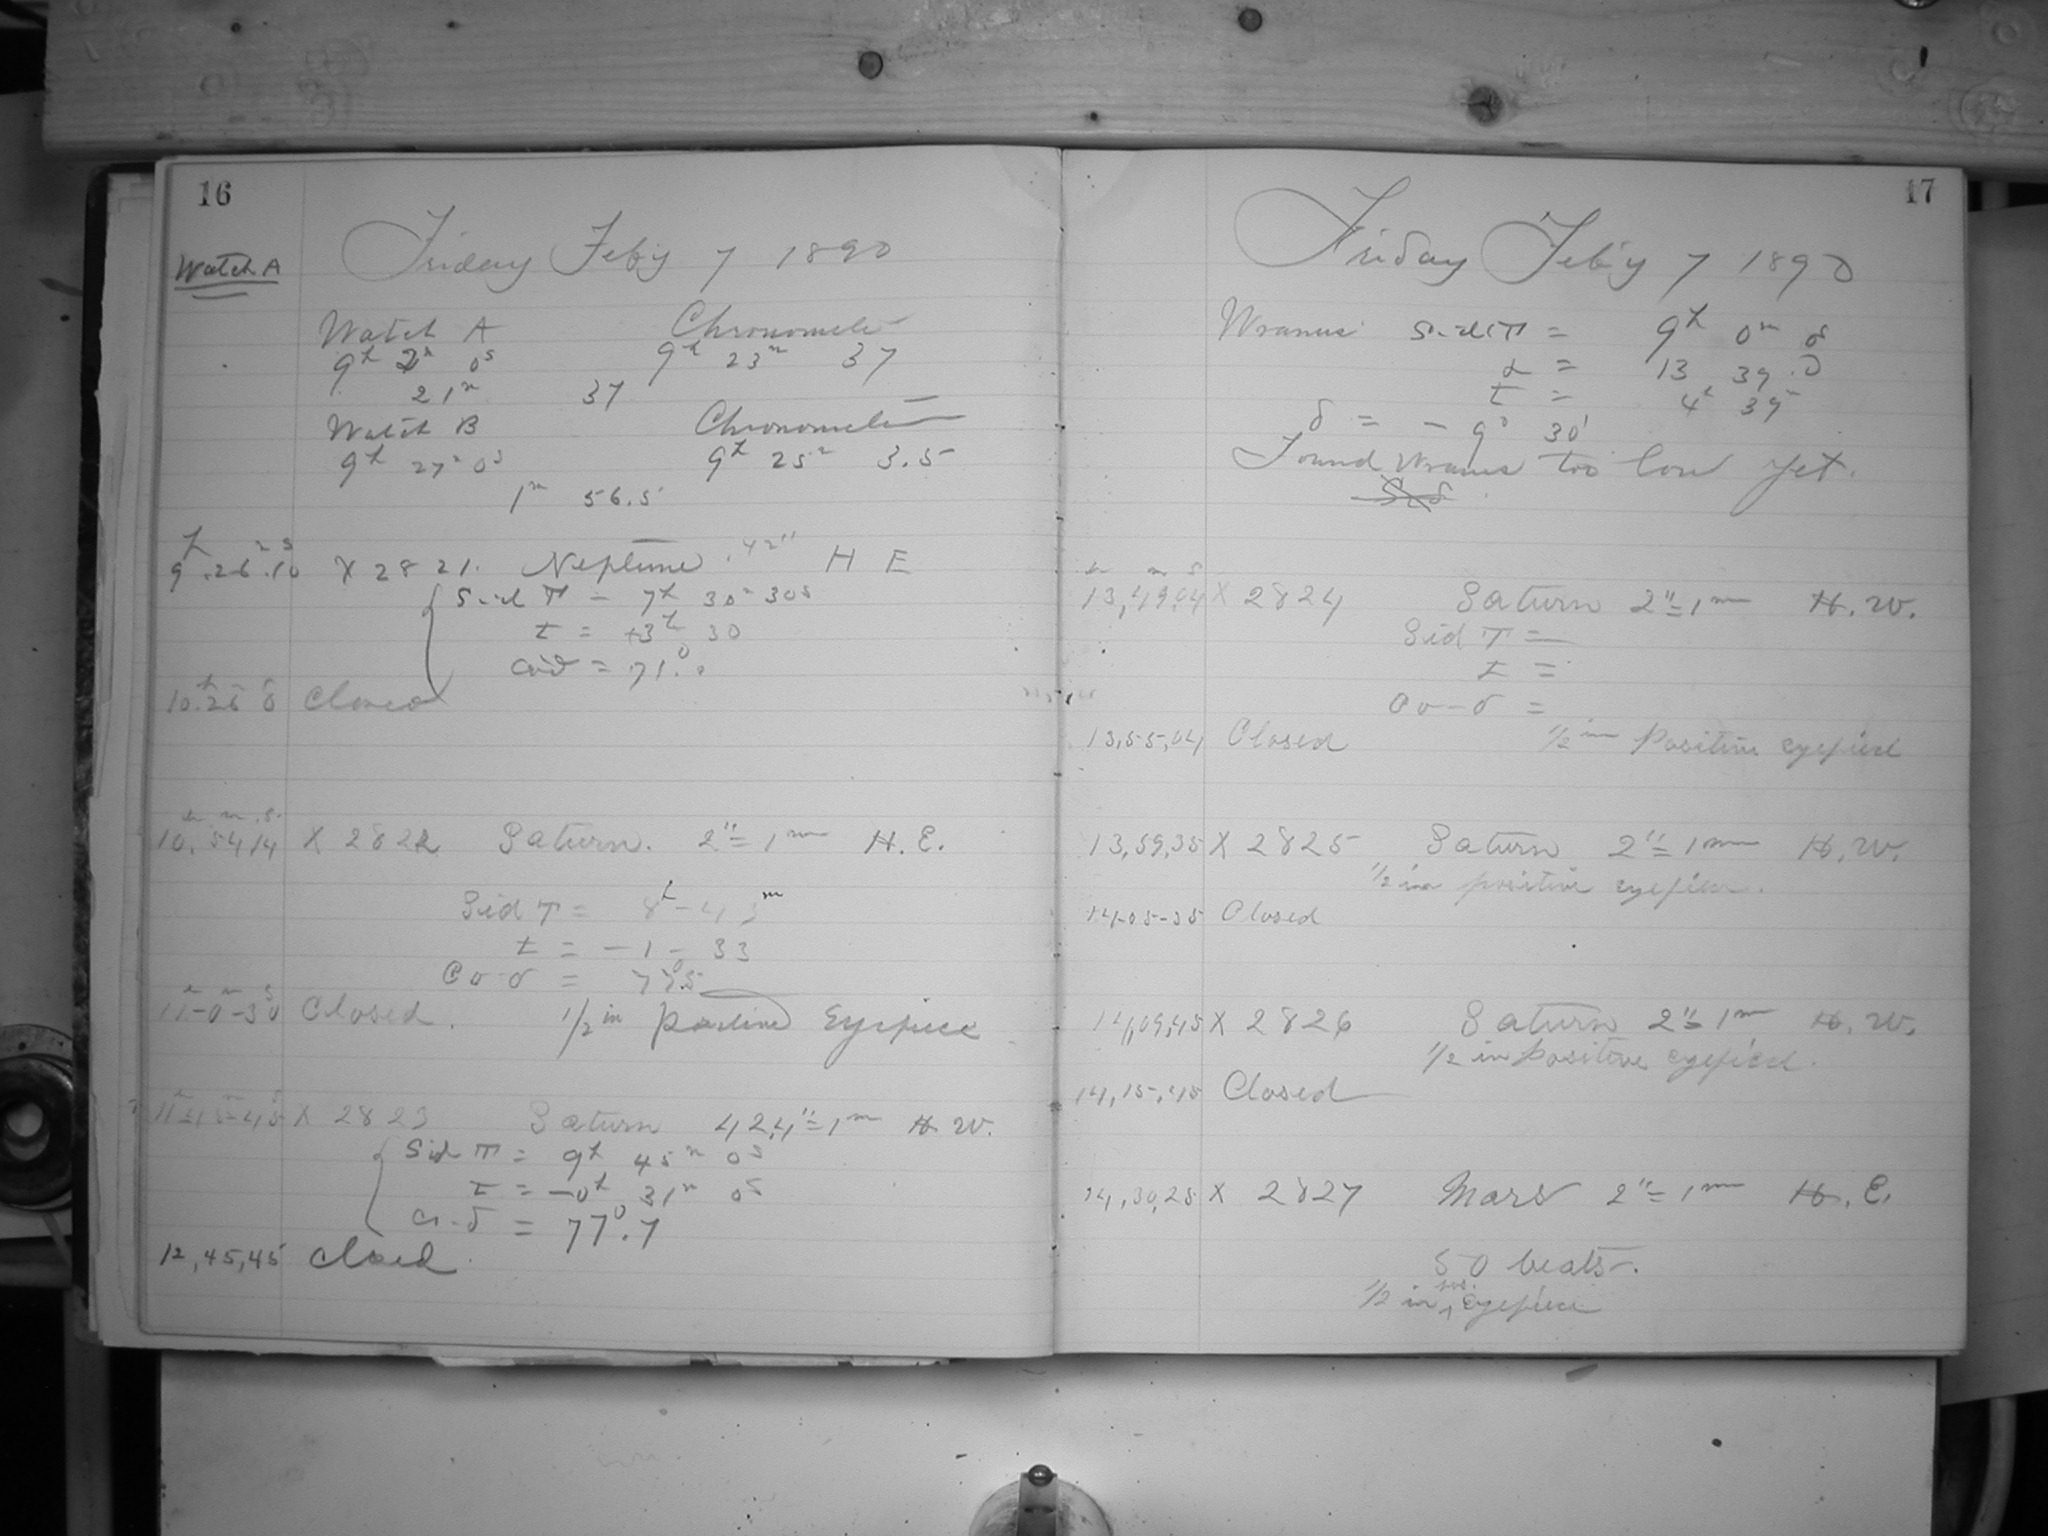 16
Friday Feby 7 1890
Watch A
Watch A Chronometer
9h 2m 0s 9h 23m 37
21m 37
Watch B Chronometer
9h 27m 0s 9h 25m 3.5
1m 56.5
9h.26m.10s X 2821. Neptune .42" H E
Sid T = 7h 30m 30s
t = +3h 30
Co-δ = 71°.
10h.26 Closed
10h,54m,14s X 2822 Saturn. 2"=1mm H. E.
Sid T = 8h-43m
t = -1-33
Co-δ = 77°.5
11h-0m-30s Closed. 1/2 in positive Eyepiece
11h-45m-45s X 2823 Saturn 42.4"=1mm H W.
Sid T = 9h 45m 0s
t = -0h 31m 0s
Co-δ = 77°.7
12,45,45 Closed
17
Friday Feb'y 7 1890
Uranus Sid T = 9h 0m
α = 13 39.0
t = 4h 39
δ = -9° 30'
Found Uranus too low yet.
13h,49m,04s X 2824 Saturn 2"=1mm H. W.
Sid T =
t =
Co-δ =
13,55,04 Closed 1/2 in Positive eyepiece
13,59,35 X 2825 Saturn 2"=1mm H. W.
1/2 in positive eyepiece.
14-05-35 Closed
14,09,45 X 2826 Saturn 2"=1mm H. W.
1/2 in positive eyepiece.
14,15,45 Closed
14,30,25 X 2827 Mars 2"=1mm H. E.
50 beats.
1/2 in pos. eyepiece